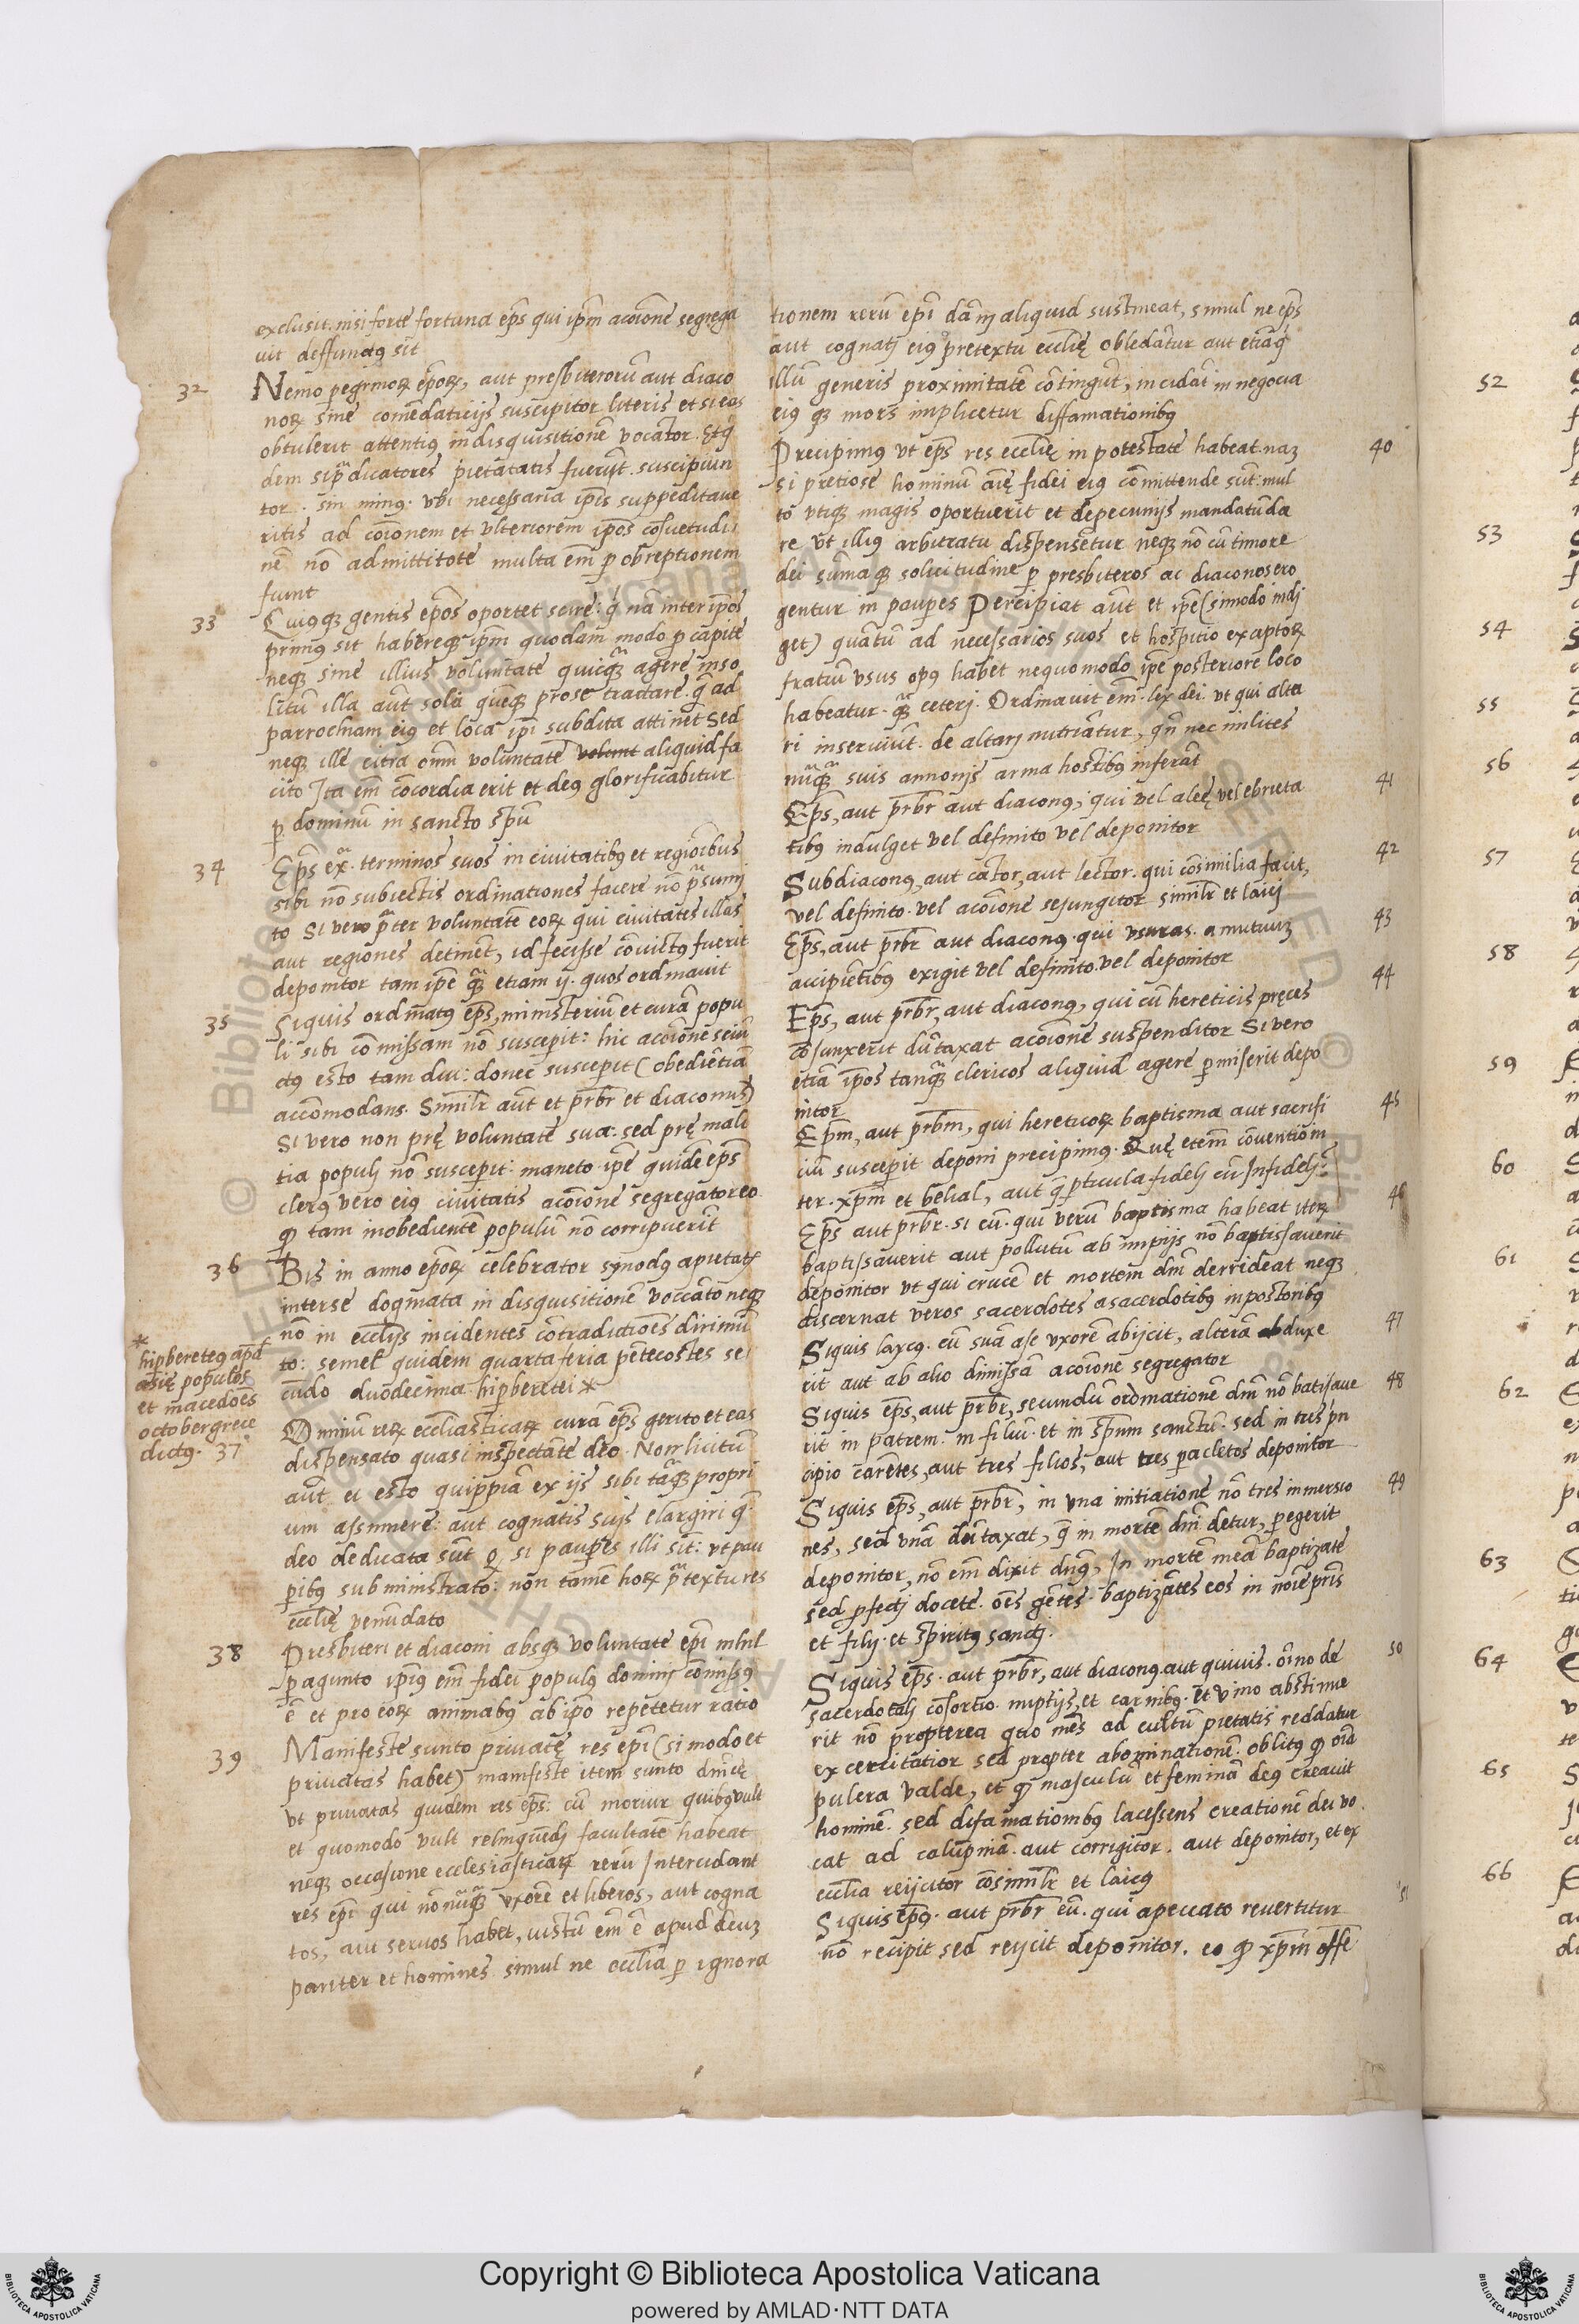 exclusit. nisi forte fortuna ep̄s qui ip̄m acoīone segrega
uit deffunctꝰ sit
32 Nemo pegrinoꝝ ep̄oꝝ, aut presbiterorū aut diaco
noꝝ sine comēdaticijs suscipitor literis et si eas
obtulerit attentiꝰ in disquisitionē vocator. Et q̄
dem si p̄dicatores pietatatis fuerint. suscipiun
tor. sin minꝰ. vbi necessaria ip̄is suppeditaue
ritis ad coīonem et vlteriorem ip̄os cōsuetudi
nē nō admittitote multa em̄ p obreptionem
fiunt
33 Cuiusqꝫ gentis ep̄os oportet scire: q̄ nā inter ip̄os
primꝰ sit habereqꝫ ip̄m quodam modo p capite
neqꝫ sine illius volūntate quicqᷓ agere inso
litū illa aūt sola quēqꝫ pro se tractare. q̄ ad
parrochiam eiꝰ et loca ip̄i subdita attinēt Sed
neqꝫ ille citra omm voluntatē aliquid fa
cito Ita em̄ cōcordia erit et deꝰ glorificabitur
p dominū in sancto sp̄u
34 Ep̄s exᷓ terminos suos in ciuitatibꝰ et regioībus
sibi nō subiectis ordinationes facere nō p̄sumi
to Si vero p̄ter voluntatē eoꝝ qui ciuitates illas
aut regiones detinēt, id fecisse cōuictꝰ fuerit
deponitor tam ip̄e qᷓ etiam ij. quos ordinauit
35 Siquis ordinatꝰ ep̄s, ministeriū et curā popu
li sibi cōmissam nō susceperit: hic acoīone seiū
ctꝰ esto tam diu: donec susceperit (obediētiā
accōmodans. Similr̄ aūt et pr̄br̄ et diaconus)
Si vero non prę voluntate sua: sed prę mali
tia populi nō susceperit: maneto ip̄e quidē ep̄s
clerꝰ vero eiꝰ ciuitatis acoīone segregator eo
ꝙ tam inobedientē populū nō corripuerīt
36 Bis in anno ep̄oꝝ celebrator synodꝰ a pietatꝭ
inter se dogmata in disquisitionē voccāto neqꝫ
nō in eccl̄ijs incidentes cōtradictiōes dirimū
to: semel quidem quarta feria pētecostes se
cūdo duodecima hipberetei *
* hipbereteꝰ ap̄d
asię populos
et macedoēs
october grece
dictꝰ.
37 Omniū reꝝ eccl̄iasticaꝝ curā ep̄s gerito et eas
dispensato quasi inspectāte deo. Non licitū
aūt ei esto quippiā ex ijs sibi tāqᷓ propri
um assumere: aut cognatis suis elargiri q̄
deo dedicata sūt ꝙ si paupes illi sīt: vt pau
pibꝰ subministrato: non tamē hoꝝ p̄textu res
eccl̄ię venūdato
38 Presbiteri et diaconi absqꝫ voluntate ep̄i nihil
pagunto ip̄iꝰ em̄ fidei populꝰ domini cōmissꝰ
ē et pro eoꝝ animabꝰ ab ip̄o repetetur ratio
39 Manifeste sunto priuatę res ep̄i (si modo et
priuatas habet) manifeste item sunto dn̄icę
vt priuatas quidem res ep̄s: cū moriur quibꝰ vult
et quomodo vult relinquēdi facultatē habeat
neqꝫ occasione ecclesiasticaꝝ rerū Intercidant
res ep̄i qui nōnūqᷓ vxorē et liberos, aut cogna
tos, aut seruos habet, iustū em̄ ē apud deuꝫ
pariter et homines simul ne eccl̄ia p ignora
tionem rerū ep̄i dāni aliquid sustineat, simul ne ep̄s
aut cognati eiꝰ pretextu eccl̄ię obledātur aut etiā q̄
illū generis proximitatē cōtingūt, incidāt in negocia
eiꝰ qꝫ mors implicetur diffamationibꝰ
40 Precipimꝰ vt ep̄s res eccl̄ię in potestate habeat. naꝫ
si pretiose hominū aīę fidei eiꝰ cōmittende sūt: mul
to vtiqꝫ magis oportuerit et de pecunijs mandatū da
re vt illiꝰ arbitratu dispensētur neqꝫ nō cū timore
dei sūmaqꝫ solicitudine p presbiteros ac diaconos ero
gentur in paupes Percipiat aūt et ip̄e (si modo indi
get) quātū ad necessarios suos et hospitio exceptoꝝ
fratrū vsus opꝰ habet nequomodo ip̄e posteriore loco
habeatur. qᷓ ceteri. Ordinauit em̄ lex dei. vt qui alta
ri inseruiūt. de altari nutriātur, qn̄ nec milites
nūqᷓ suis annonis arma hostibꝰ inferāt
41 Ep̄s, aut pr̄br̄ aut diaconꝰ, qui vel aleę vel ebrieta
tibꝰ indulget vel definito vel deponitor
42 Subdiaconꝰ, aut cātor, aut lector. qui cōsimilia facit,
vel definito. vel acoīone sejungitor similr̄ et laici
43 Ep̄s, aut pr̄br̄ aut diaconꝰ. qui vsuras. a mutuuꝫ
accipiētibꝰ exigit vel definito. vel deponitor
44 Ep̄s, aut pr̄br̄, aut diaconꝰ, qui cū hereticis pręces
cōjunxerit dūtaxat acoīone suspenditor Si vero
etiā ip̄os tanqᷓ clericos aliquid agere pmiserit depo
nitor
45 Ep̄m, aut pr̄br̄m, qui hereticoꝝ baptisma aut sacrifi
ciū susceperit deponi precipimꝰ. Quę etem̄ cōuentio in
ter. xp̄m et belial, aut q̄ pticula fideli cū Infideli?
46 Ep̄s aut pr̄br̄. si eū. qui verū baptisma habeat iteꝝ
baptissauerit aut pollutū ab impijs nō baptissauerit
deponitor vt qui crucē et mortem dn̄i derrideat neqꝫ
discernat veros sacerdotes a sacerdotibꝰ inpostoribꝰ
47 Siquis laycꝰ. eū suā a se vxorē abijcit, alterā abduxe
rit aut ab alio dimissā acoīone segregator
48 Siquis ep̄s, aut pr̄br̄, secundū ordinationē dn̄i nō batisaue
rit in patrem. in filiū. et in sp̄um sanctū. sed in tris prin
cipio carētes, aut tres filios, aut tres pacletos deponitor
49 Siquis ep̄s, aut pr̄br̄, in vna initiatione nō tres inmersio
nes, sed vnā dūtaxat, q̄ in mortē dn̄i detur, pegerit
deponitor, nō em̄ dixit dn̄s, In mortē meā baptizate
sed pfecti docete. oēs gētes. baptizātes eos in noīe pr̄is
et filij. et spiritꝰ sancti.
50 Siquis ep̄s. aut pr̄br̄, aut diaconꝰ. aut quiuis. oīno de
sacerdotali cōsortio. nuptijs, et carnibꝰ. et vino abstinue
rit nō propterea quo mēs ad cultū pietatis reddatur
excercitatior sed propter abominationē. oblitꝰ ꝙ oīa
pulcra valde, et ꝙ masculū et feminā deꝰ creauit
hominē. sed difamationibꝰ lacessens creationē dei vo
cat ad calupniā. aut corrigitor. aut deponitor, et ex
eccl̄ia reijcitor cōsimilr̄ et laicꝰ
51 Siquis ep̄ꝰ. aut pr̄br̄ eū. qui a peccato reuertitur
nō recipit sed reijcit deponitor. eo ꝙ xp̄m offē
52
53
54
55
56
57
58
59
60
61
62
63
64
65
66
Copyright © Biblioteca Apostolica Vaticana
powered by AMLAD·NTT DATA